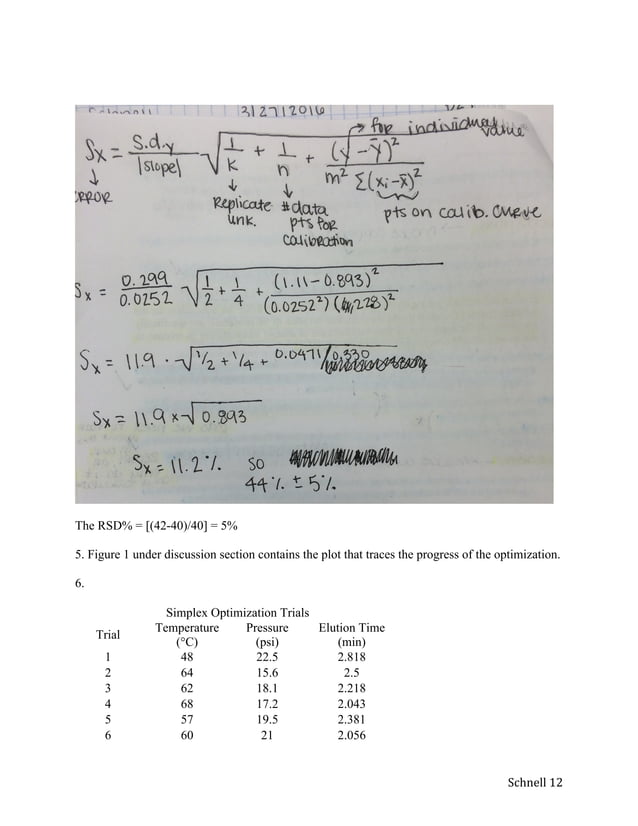 3/27/2016
Sx = S.d.y / |slope| √ 1/k + 1/n + (y - ȳ)² / m² Σ(xi - x̄)² → for individual value
↓ ERROR
↓ Replicate unk. ↓ # data pts for calibration pts on calib. curve
Sx = 0.299 / 0.0252 √ 1/2 + 1/4 + (1.11 - 0.893)² / (0.0252²)( 228)²
Sx = 11.9 · √ 1/2 + 1/4 + 0.0471/0.330
Sx = 11.9 x √ 0.893
Sx = 11.2% so
44% ± 5%
The RSD% = [(42-40)/40] = 5%
5. Figure 1 under discussion section contains the plot that traces the progress of the optimization.
6.
Simplex Optimization Trials
Trial Temperature (°C) Pressure (psi) Elution Time (min)
1 48 22.5 2.818
2 64 15.6 2.5
3 62 18.1 2.218
4 68 17.2 2.043
5 57 19.5 2.381
6 60 21 2.056
Schnell 12